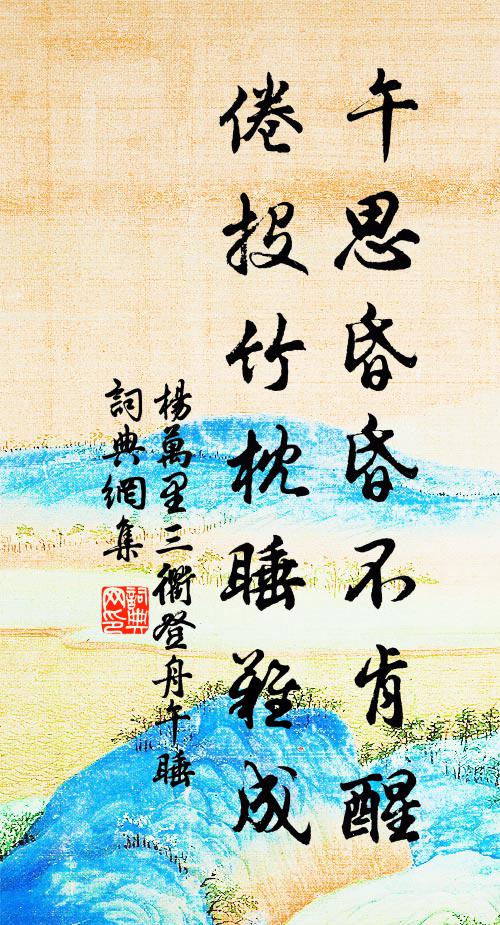 午思昏昏不肯醒
倦投竹枕睡難成
楊萬里三衢登舟午睡
詞典網集
詞典網印